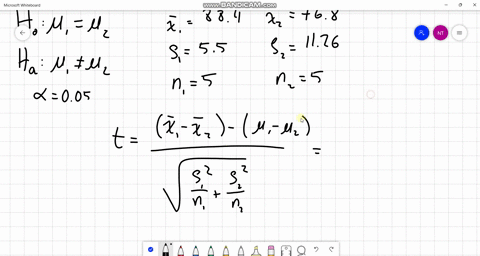 Microsoft Whiteboard
WWW.BANDICAM.COM
H₀: μ₁ = μ₂
x̄₁ = 88.4
x̄₂ = 76.8
Hₐ: μ₁ ≠ μ₂
S₁ = 5.5
S₂ = 11.26
α = 0.05
n₁ = 5
n₂ = 5
NT
t = (x̄₁ - x̄₂) - (μ₁ - μ₂) =
√ S₁²/n₁ + S₂²/n₂